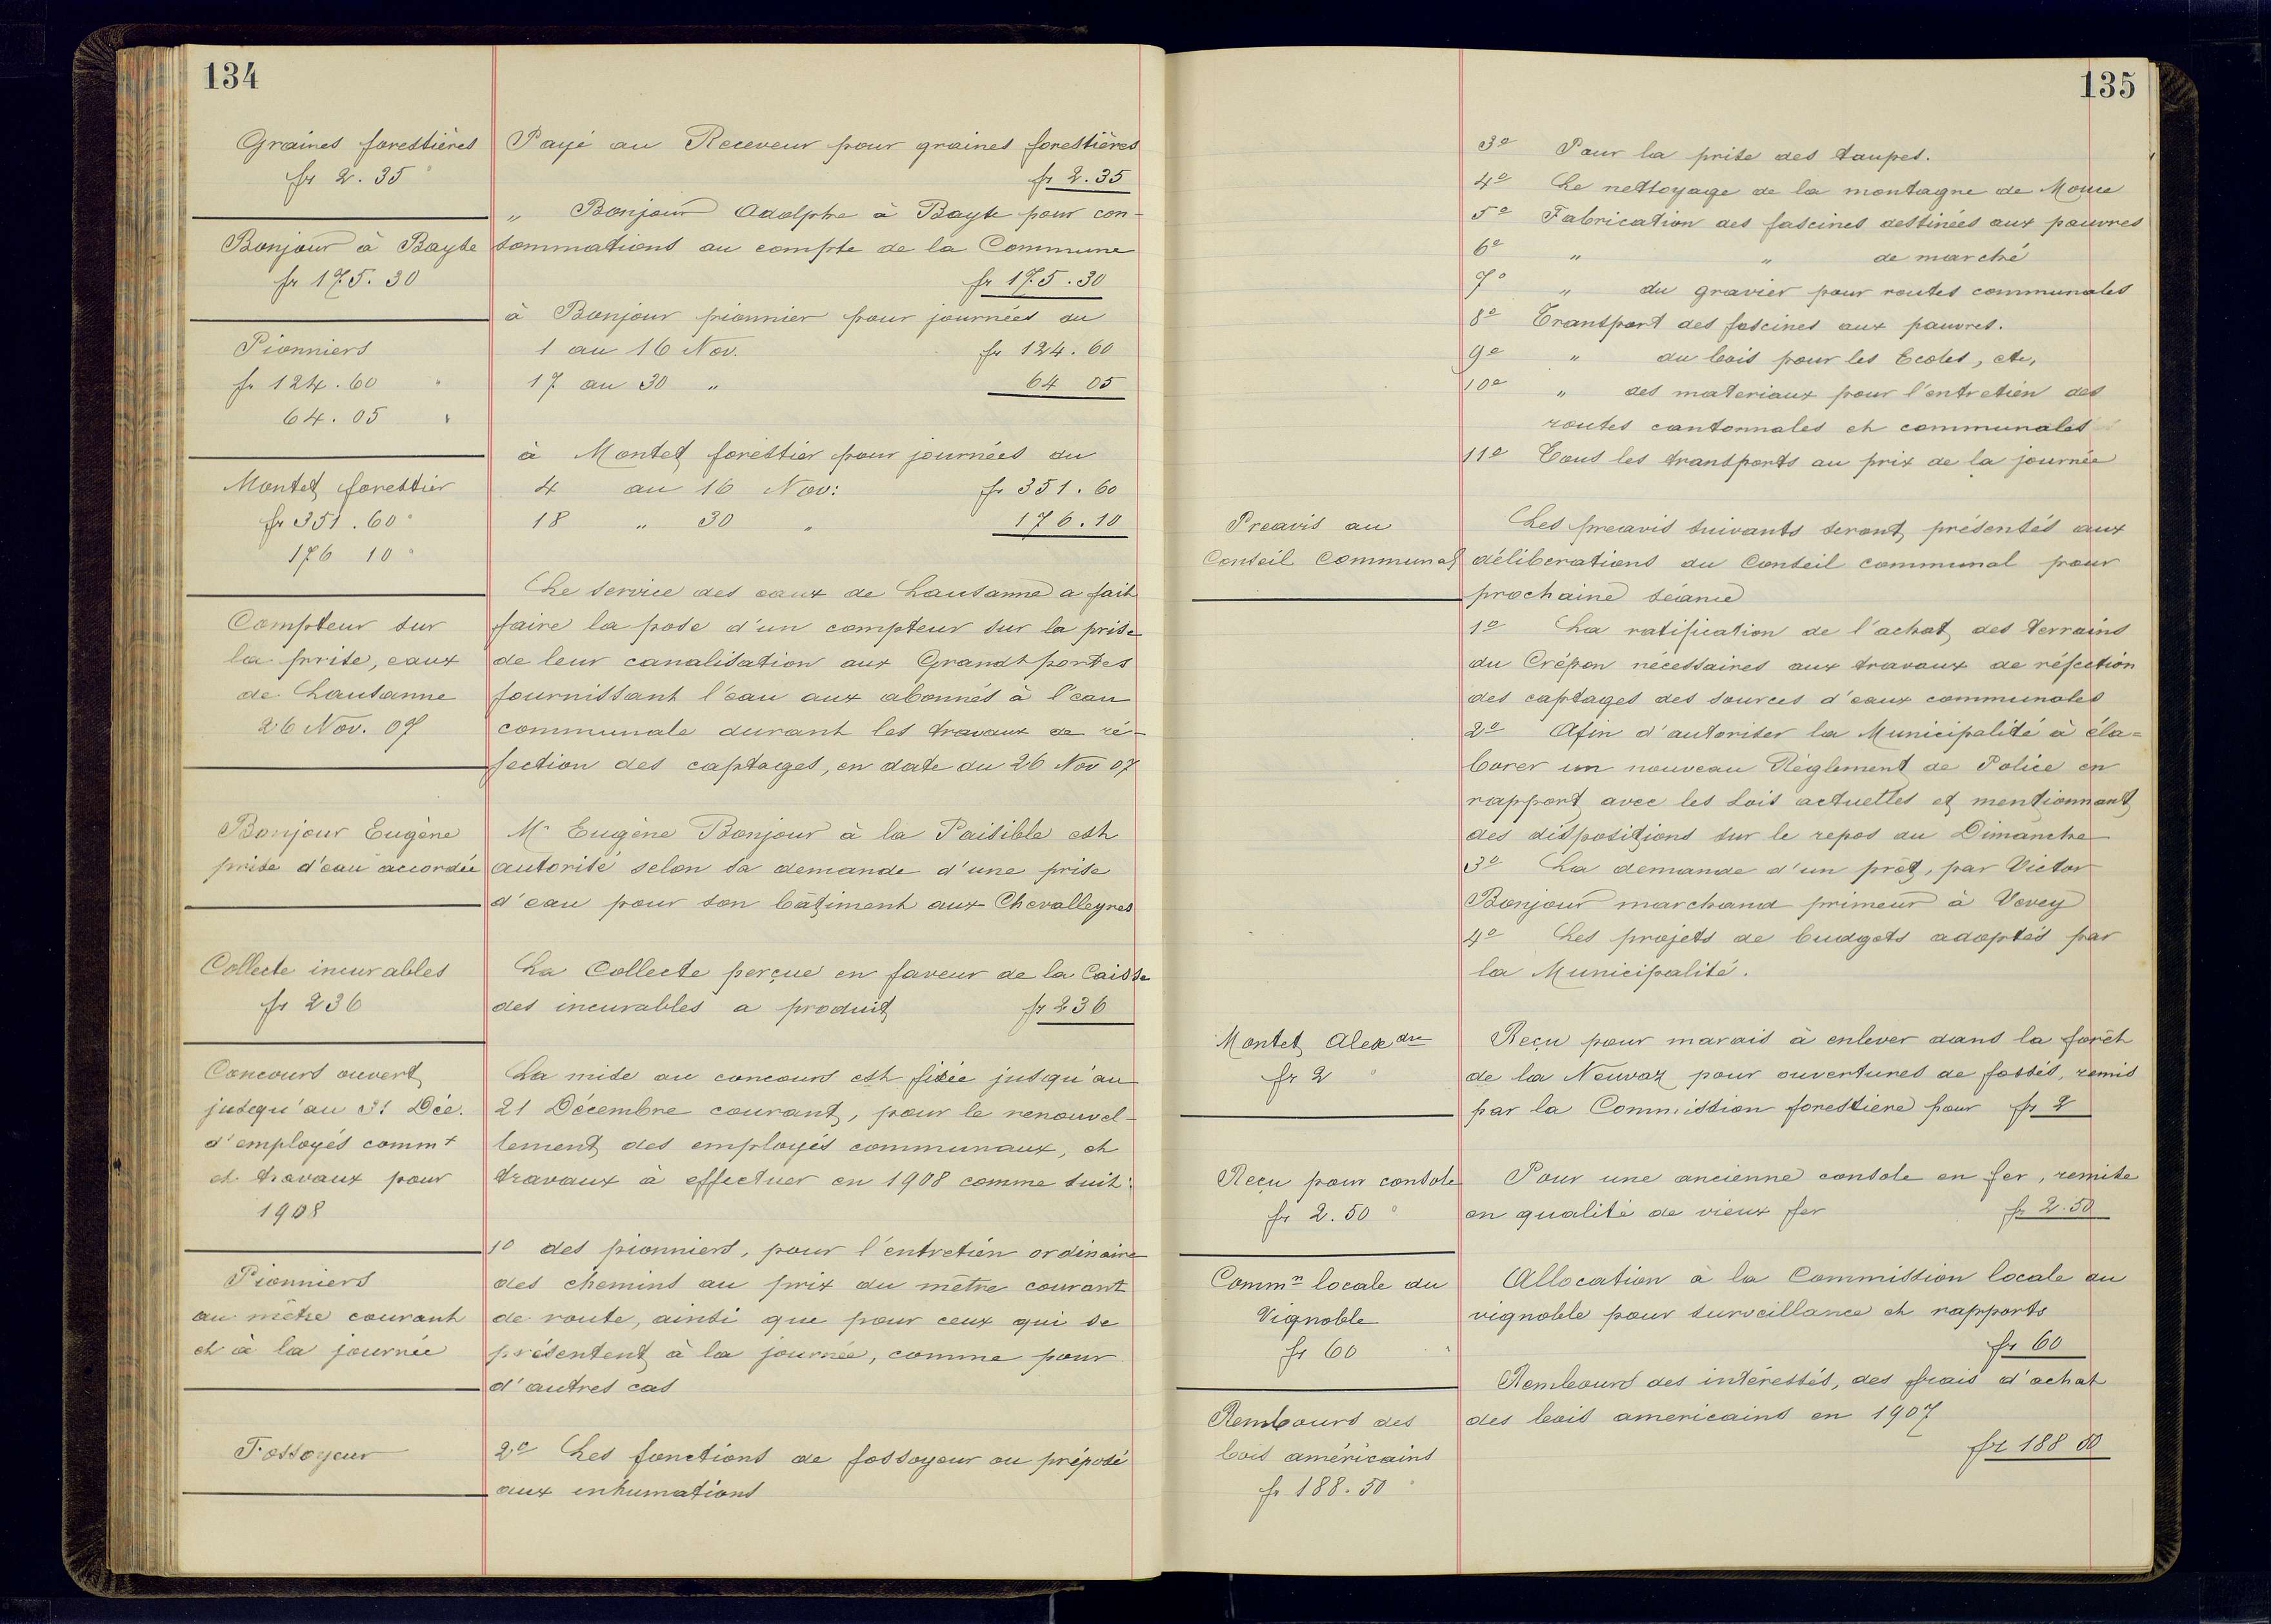 134
Graines forestières
fr 2.35
Payé au Receveur pour graines forestières
fr 2.35
Bonjour à Bayse
fr 175.30
" Bonjour Adolphe à Bayse pour con-
sommations au compte de la Commune
fr 175.30
Pionniers
fr 124.60 "
64.05 "
à Bonjour pionnier pour journées du
1 au 16 Nov. fr 124.60
17 au 30 " 64 05
Montet forestier
fr 351.60 "
176 10 "
à Montet forestier pour journées du
4 au 16 Nov: fr 351.60
18 " 30 " 176.10
Compteur sur
la prise, eaux
de Lausanne
26 Nov. 07
Le service des eaux de Lausanne a fait
faire la pose d'un compteur sur la prise
de leur canalisation aux Grands portes
fournissant l'eau aux abonnés à l'eau
communale durant les travaux de ré-
fection des captages, en date du 26 Nov 07
Bonjour Eugène
prise d'eau accordée
Mr Eugène Bonjour à la Paisible est
autorisé selon sa demande d'une prise
d'eau pour son bâtiment aux Chevalleyres
Collecte incurables
fr 236
La Collecte perçue en faveur de la Caisse
des incurables a produit fr 236
Concours ouvert
jusequ'au 31 Déc.
d'employés commt
et travaux pour
1908
La mise au concours est fixée jusqu'au
21 Décembre courant, pour le renouvel-
lement des employés communaux, et
travaux à effectuer en 1908 comme suit:
Pionniers
au mètre courant
et à la journée
1o des pionniers, pour l'entretien ordinaire
des chemins au prix du mètre courant
de route, ainsi que pour ceux qui se
présentent à la journée, comme pour
d'autres cas
Fossoyeur
2o Les fonctions de fossoyeur ou préposé
aux inhumations
135
3o Pour la prise des taupes.
4o Le nettoyage de la montagne de
5o Fabrication des fascines destinées aux pauvres
6o " " de marché
7o " du gravier pour routes communales
8o Transport des fascines aux pauvres.
9o " du bois pour les Ecoles, etc,
10o " des materiaux pour l'entretien des
routes cantonnales et communales
11o Tous les transports au prix de la journée
Preavis au
Conseil Communal
Les preavis suivants seront présentés aux
déliberations du Conseil communal pour
prochaine séance
1o La ratification de l'achat des terrains
du Crépon nécessaires aux travaux de réfection
des captages des sources d'eaux communales
2o Afin d'autoriser la Municipalité à éla=
borer un nouveau Règlement de Police en
rapport avec les Lois actuelles et mentionnant
des dispositions sur le repos du Dimanche
3o La demande d'un prêt, par Victor
Bonjour marchand primeur à Vevey
4o Les projets de budgets adoptés par
la Municipalité.
Montet Alexdre
fr 2 "
Reçu pour marais à enlever dans la forêt
de la Neuvaz pour ouvertures de fossés, remis
par la Commission forestiere pour fr 2
Reçu pour console
fr 2.50 "
Pour une ancienne console en fer, remise
en qualité de vieux fer fr 2.50
Commn locale du
Vignoble
fr 60 "
Allocation à la Commission locale du
vignoble pour surveillance et rapports
fr 60
Rembours des
bois américains
fr 188.50 "
Rembours des intéressés, des frais d'achat
des bois americains en 1907
fr 188 50